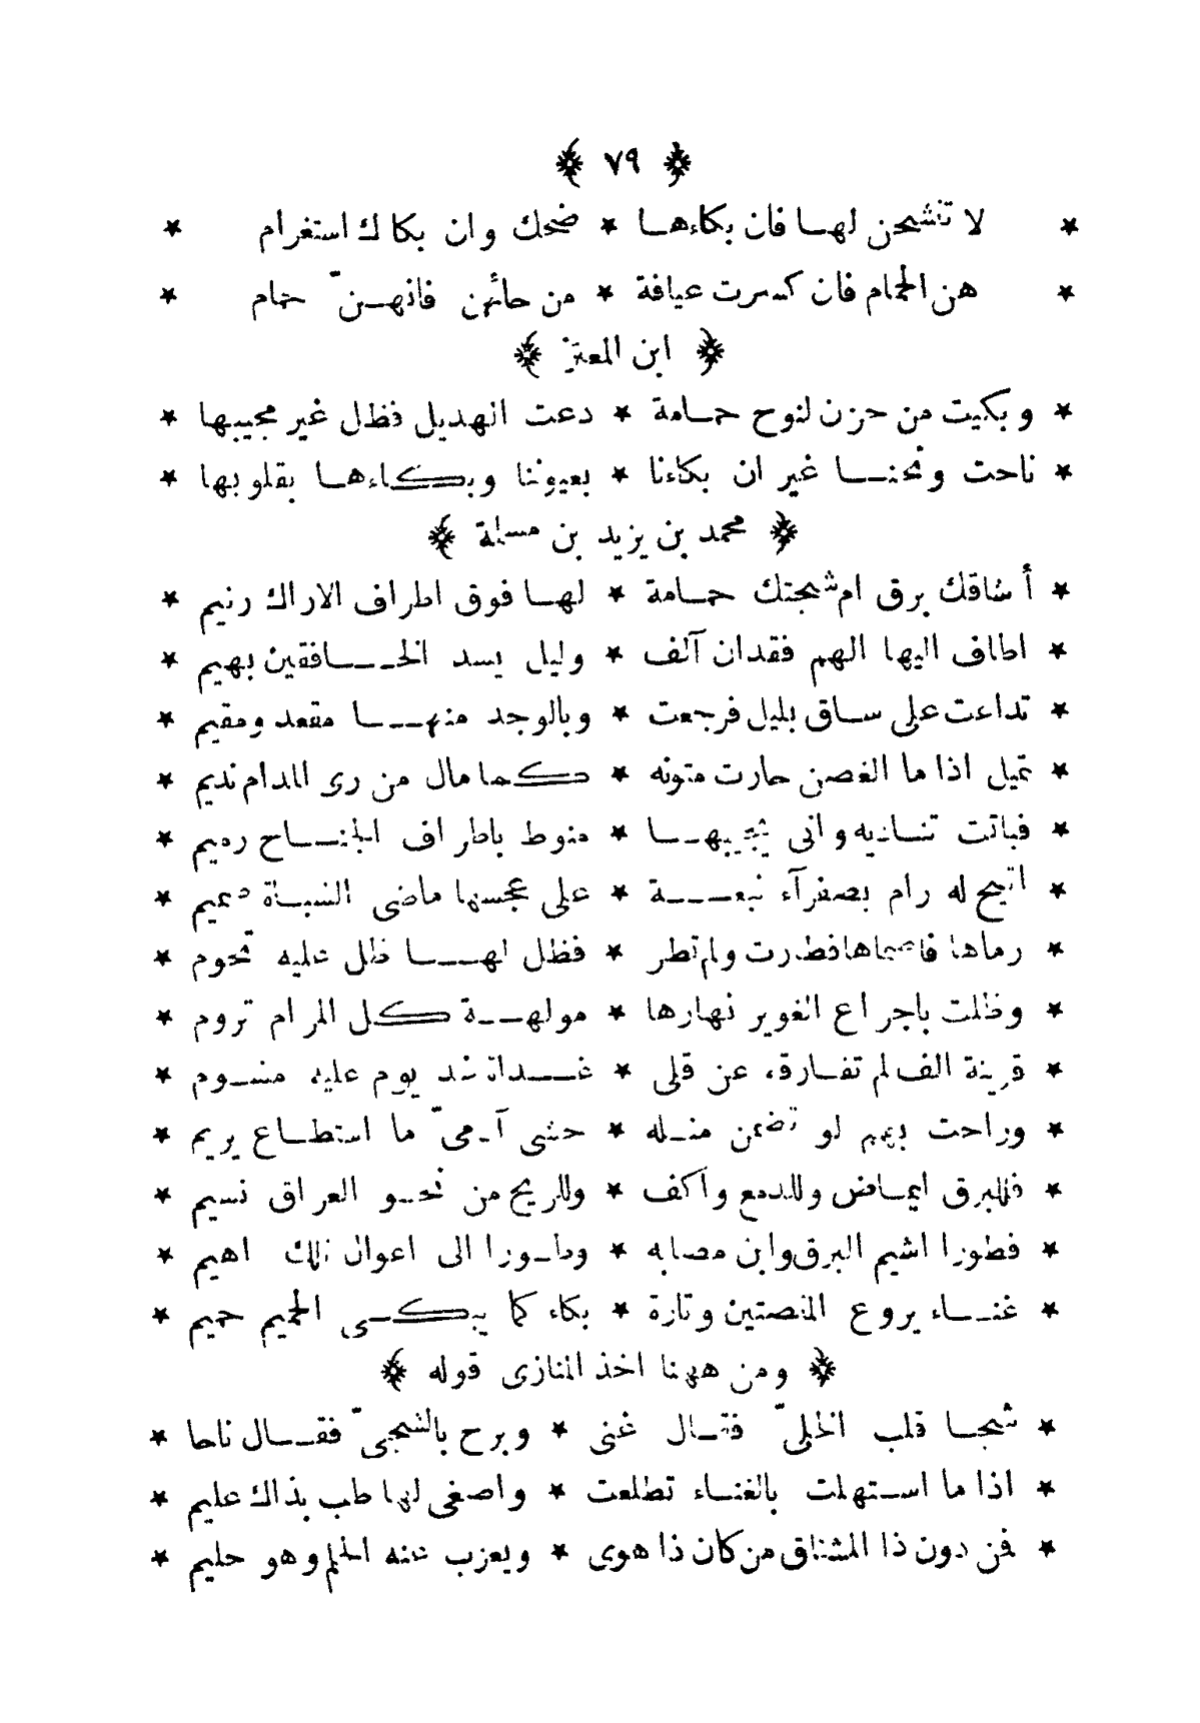 ﴿ ٧٩ ﴾
* لا تنشجن لهـا فان بكاءهـا * ضحك وان بكاك استغرام *
* هن الحمام فان كسرت عيافة * من حائهن فانهـن ّ حمام *
﴿ ابن المعتز ﴾
* وبكيت من حزن لنوح حمـامة * دعت الهديل فظل غير مجيبها *
* ناحت ونحنـا غير ان بكاءنا * بعيوننا وبكاءهـا بقلوبها *
﴿ محمد بن يزيد بن مسلمة ﴾
* أشاقك برق ام شجتك حمـامة * لهـا فوق اطراف الاراك رنيم *
* اطاف اليها الهم فقدان آلف * وليل يسد الخـافقين بهيم *
* تداعت على سـاق بليل فرجعت * وبالوجد منهـا مقعد ومقيم *
* تميل اذا ما الغصن حارت متونه * كما مال من رى المدام نديم *
* فباتت تنـاديه وانى يجيبهـا * منوط باطراف الجنـاح رميم *
* اتيح له رام بصفرآء نبعـة * على عجسها ماضى الشبـاة صميم *
* رماها فاصماها فطارت ولم تطر * فظل لهـا ظل عليه تحوم *
* وظلت باجراع الغوير نهارها * مولهـة كل المرام تروم *
* قرينة الف لم تفـارقه عن قلى * غـداة غد يوم عليه مشـوم *
* وراحت بهم لو تضمن منـله * حشى آدمىّ ما استطـاع يريم *
* فللبرق ايمـاض وللدمع واكف * وللريح من نحـو العراق نسيم *
* فطورا اشيم البرق واين مصابه * وطـورا الى اعوال تلك اهيم *
* غنـاء يروع المنصتين وتارة * بكاء كما يبكى الحميم حميم *
﴿ ومن ههنا اخذ المنازى قوله ﴾
* شجـا قلب الخلىّ فقـال غنى * وبرح بالشجىّ فقـال ناحا *
* اذا ما استهلت بالغنـاء تطلعت * واصغى لها طب بذاك عليم *
* فمن دون ذا المشتاق من كان ذا هوى * ويعزب عنه الحلم وهو حليم *